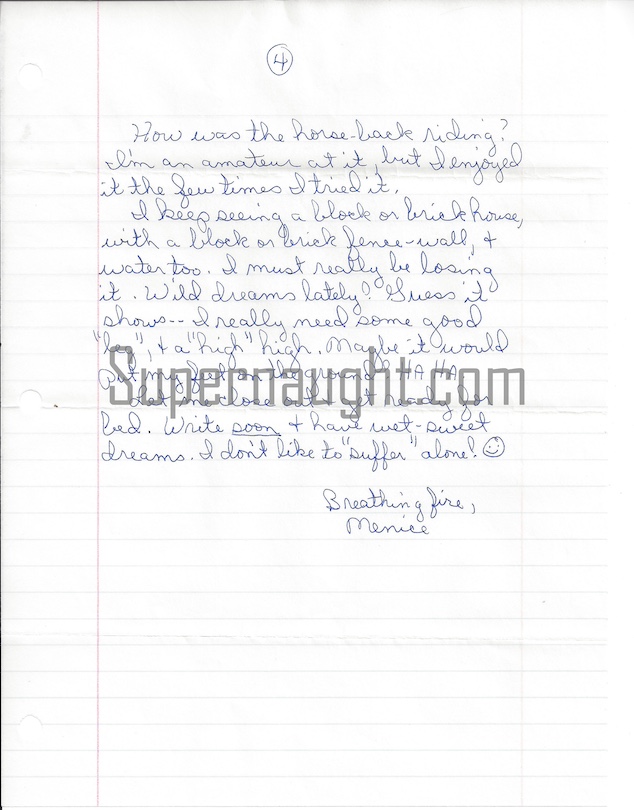 4
How was the horse-back riding?
I'm an amateur at it, but I enjoyed
it the few times I tried it.
I keep seeing a block or brick house,
with a block or brick fence-wall, +
water too. I must really be losing
it. Wild dreams lately? Guess it
shows-- I really need some good
"leg", + a "high" high. Maybe it would
put my feet on the ground? HA HA
Supernaught.com
Let me close out + get ready for
bed. Write soon + have wet-sweet
dreams. I don't like to "suffer" alone! ☺
Breathing fire,
Menice